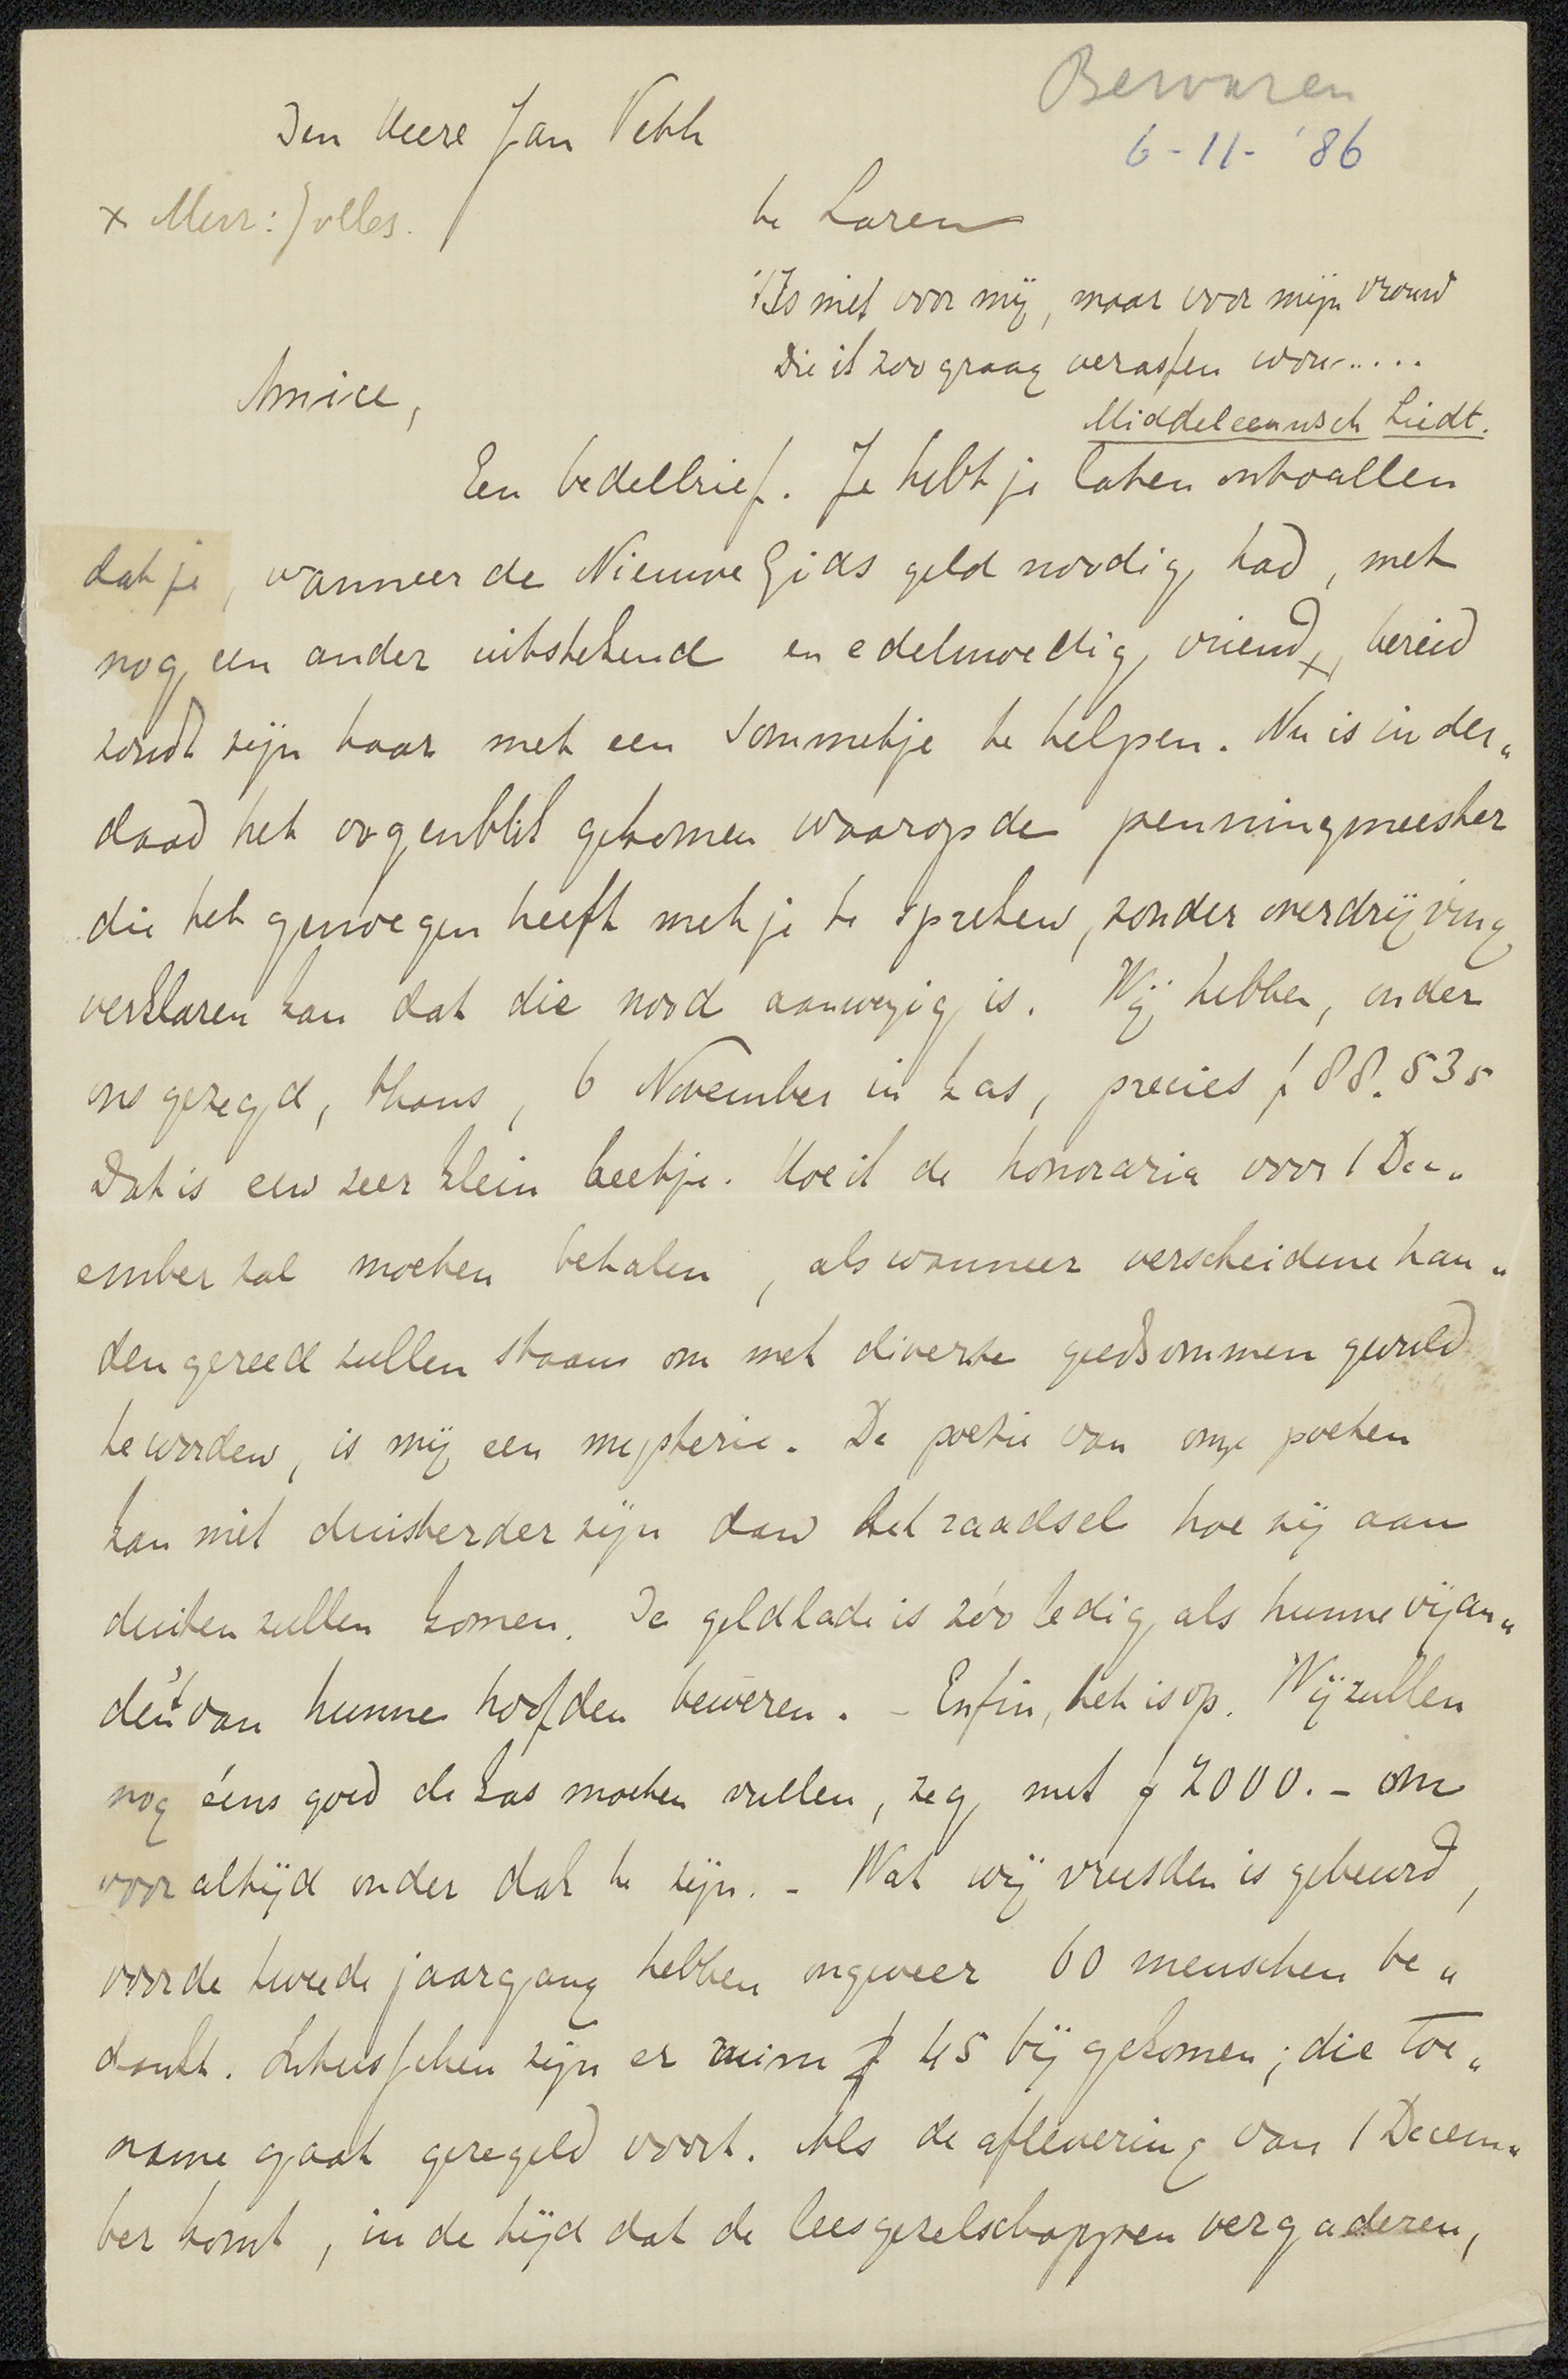 Bewaren
6-11-'86
Den Heere Jan Veth
x Mevr: Jolles.
te Laren
't Is niet voor mij, maar voor mijn vrouw
Die ik zoo graag verassen wou.....
Middeleeuwsch Liedt.
Amice,
Een bedelbrief. Je hebt je laten ontvallen
dat je, wanneer de Nieuwe Gids geld noodig had, met
nog een ander uitstekend en edelmoedig vriend x, bereid
zoudt zijn haar met een sommetje te helpen. Nu is inder„
daad het oogenblik gekomen waarop de penningmeester
die het genoegen heeft met je te spreken, zonder overdrijving
verklaren kan dat die nood aanwezig is. Wij hebben, onder
ons gezegd, thans, 6 November in kas, precies f 88.535
Dat is een zeer klein beetje. Hoe ik de honoraria voor 1 Dec„
ember zal moeten betalen, als wanneer verscheidene han„
den gereed zullen staan om met diverse geldsommen gevuld
te worden, is mij een mysterie. De poëzie van onze poëten
kan niet duisterder zijn dan het raadsel hoe zij aan
duiten zullen komen. De geldlade is zóo ledig als hunne vijan„
den 't van hunne hoofden beweren. - Enfin, het is op. Wij zullen
nog ééns goed de kas moeten vullen, zeg met f 2000.- om
voor altijd onder dak te zijn. - Wat wij vreesden is gebeurd,
voor de tweede jaargang hebben ongeveer 60 menschen be„
dankt. Intusschen zijn er ruim 45 bij gekomen; die toe„
name gaat geregeld voort. Als de aflevering van 1 Decem„
ber komt, in de tijd dat de leesgezelschappen vergaderen,